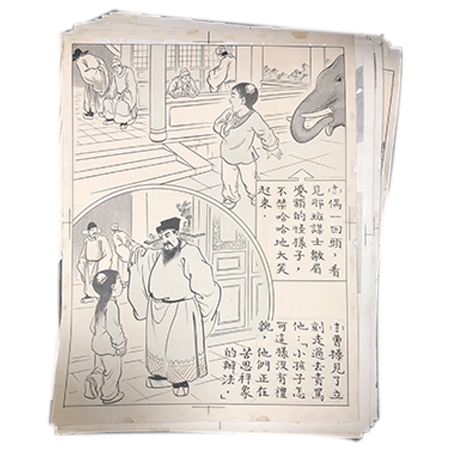 偶一回頭，看
見那班謀士皺眉
蹙額的怪樣子，
不禁哈哈地大笑
起來．
曹操見了立
刻走過去責罵
他：「小孩子怎
可這樣沒有禮
貌，他們正在
苦思秤象
的辦法」